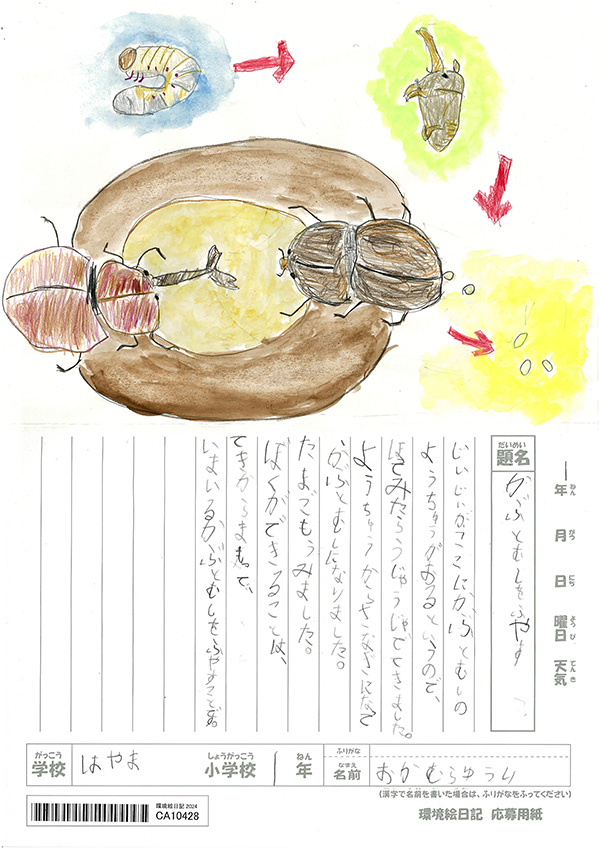 年 ねん
月 がつ
日 にち
曜日 ようび
天気 てんき
題名 だいめい
かぶとむしをふやす
じいじいがここにかぶとむしの
ようちゅうがおるというので、
ほってみたらうじゃうじゃでてきました。
ようちゅうからさなぎになて
かぶとむしになりました。
たまごもうみました。
ぼくができることは、
てきからまもって、
いまいるかぶとむしをふやすことです。
学校 がっこう はやま 小学校 しょうがっこう 1 年 ねん
ふりがな
名前 なまえ おかむらゆうり
(漢字で名前を書いた場合は、ふりがなをふってください)
環境絵日記 2024
CA10428
環境絵日記 応募用紙